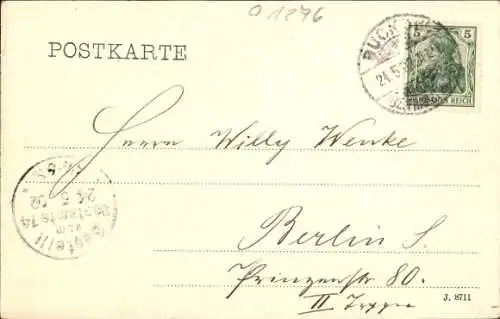 O 1276
POSTKARTE
5 5
BUCK
24.5.02
DEUTSCHES REICH
Herrn Willy Wenke
Berlin S.
Prinzenstr 80.
III Treppen
Bestellt
vom
Postamte 74
24 5 02
J. 8711